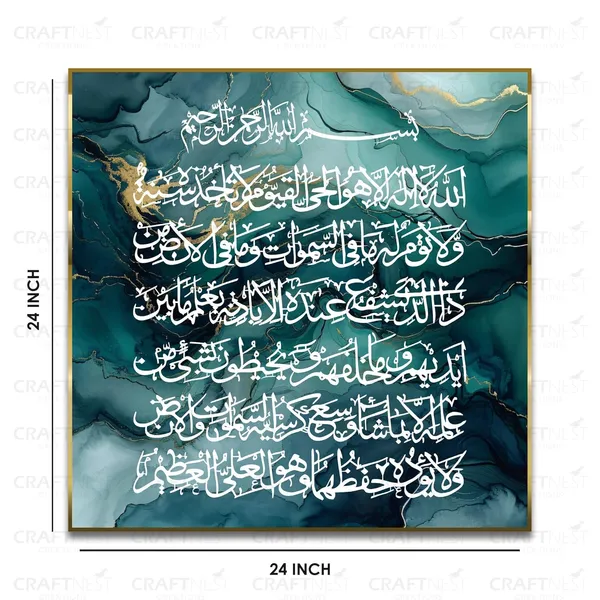 CRAFTNEST
بسم الله الرحمن الرحيم
الله لا إله إلا هو الحي القيوم لا تأخذه سنة
ولا نوم له ما في السموات وما في الأرض من
ذا الذي يشفع عنده إلا بإذنه يعلم ما بين
أيديهم وما خلفهم ولا يحيطون بشيء من
علمه إلا بما شاء وسع كرسيه السموات والأرض
ولا يؤده حفظهما وهو العلي العظيم
24 INCH
24 INCH